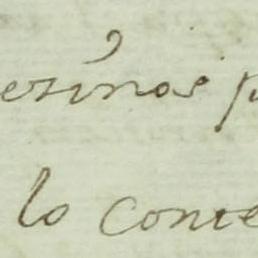 ezinos p
lo conte